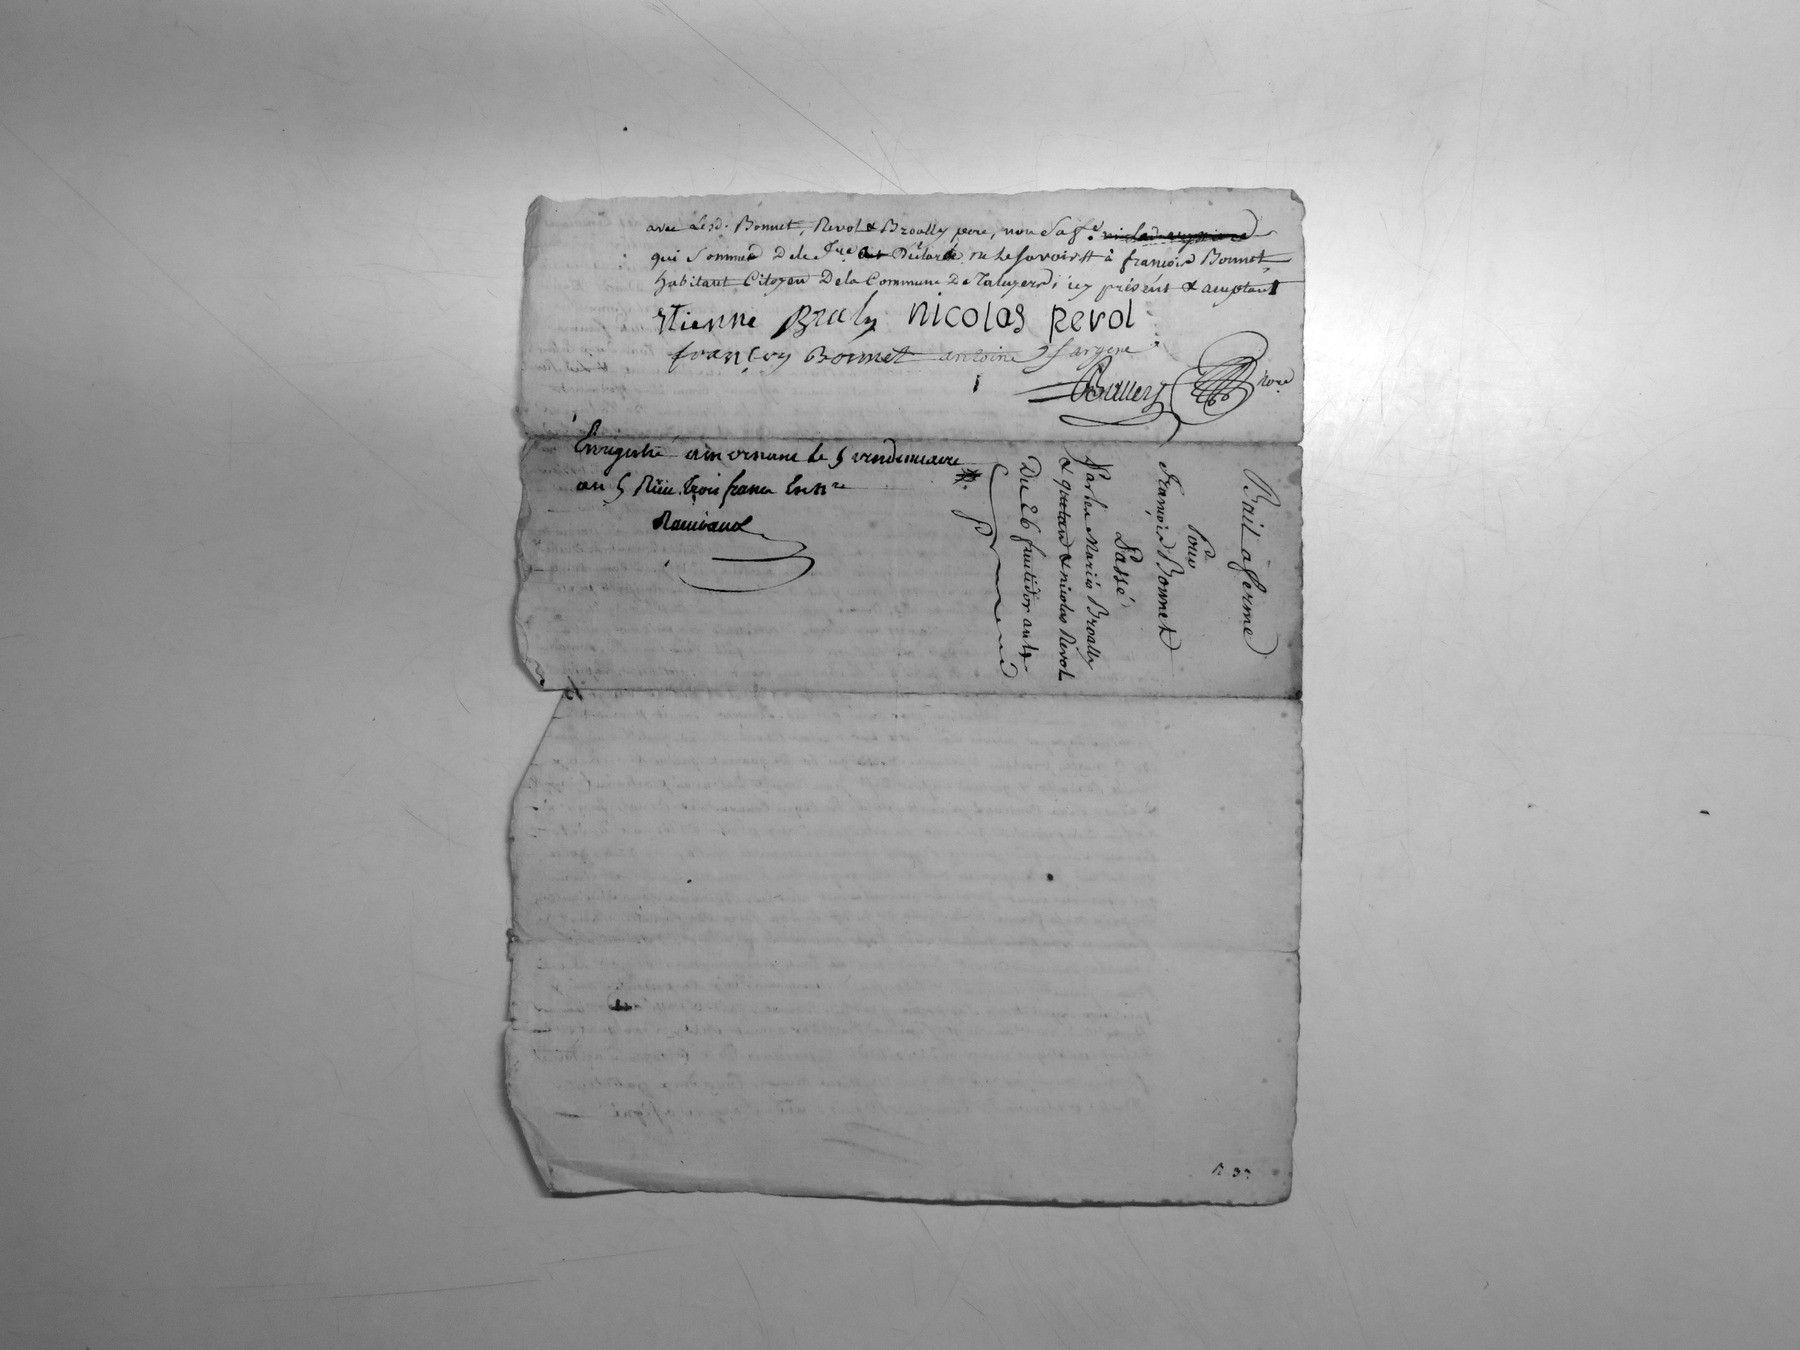 avec Lesd. Bonnet, Revol & Broally pere, non Sa fe
qui Sommée De le fre Déclaré ne le Savoir # à françois Bonnet
habitant Citoyen De la Commune De Taluyers, icy présent & acceptant
Etienne Braly nicolas revol
françoy Bonnet antoine fargere
Brallery Nore
Enregistré à mornant le 5 vendemiaire
an 5 Reçu trois francs
Rambaud
Bail à ferme
Pour
François Bonnet
Passé
Par les Mariés Broally
& nicolas Revol
Du 26 fructidor an 4